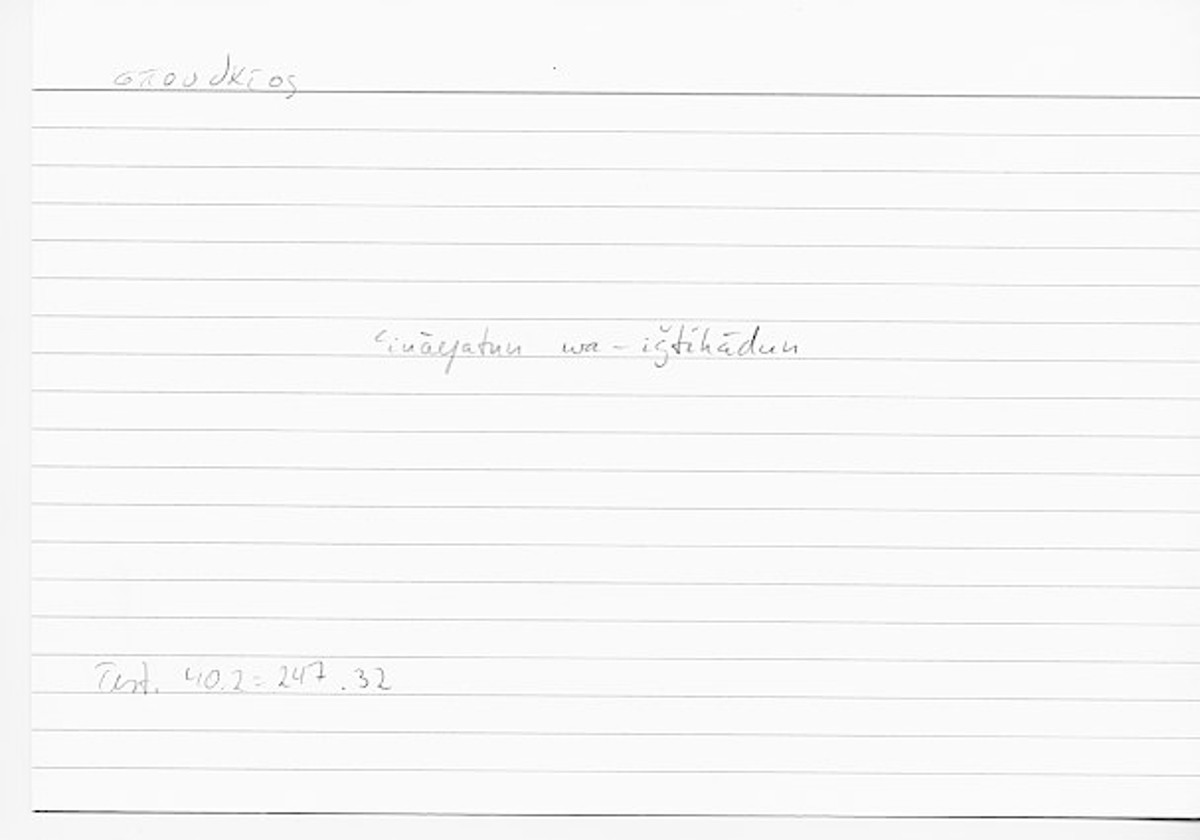 σπουδκτος
ʿināyatun wa-iǧtihādun
Test. 40.2 = 247.32